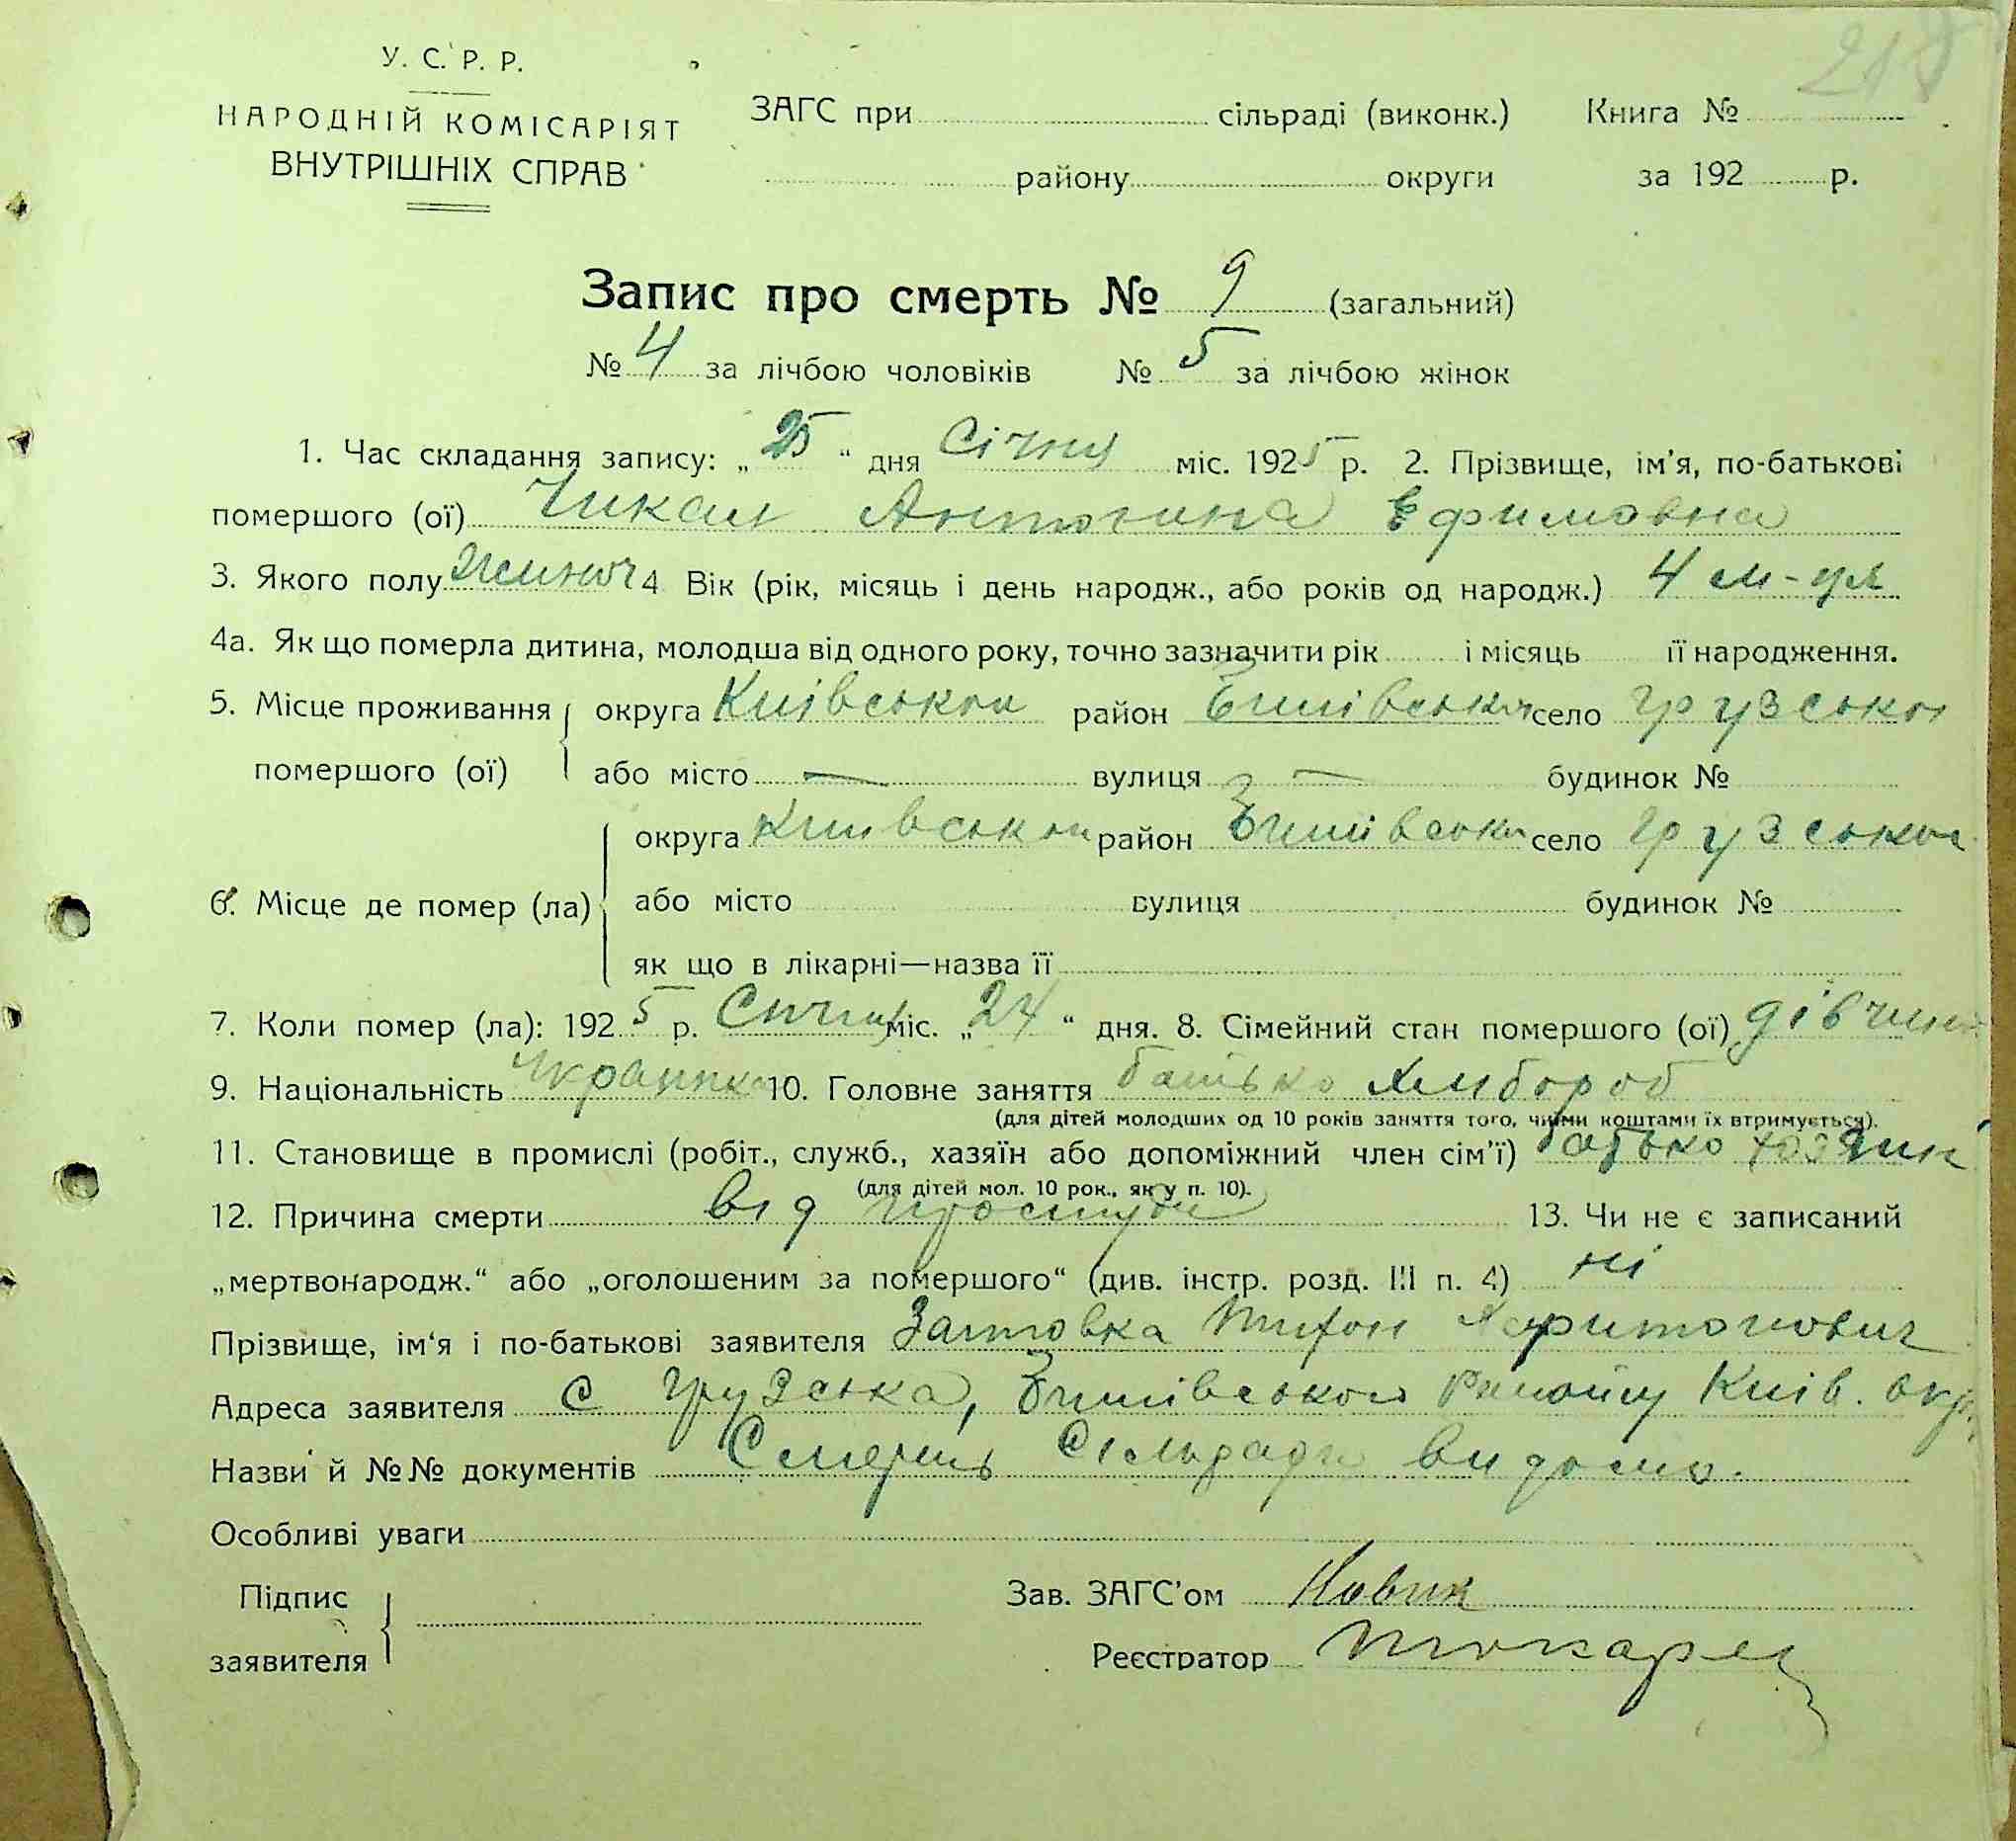 218
У. С. Р. Р.
НАРОДНІЙ КОМІСАРІЯТ
ВНУТРІШНІХ СПРАВ
ЗАГС при сільраді (виконк.) Книга №
району округи за 192 р.
Запис про смерть № 9 (загальний)
№ 4 за лічбою чоловіків № 5 за лічбою жінок
1. Час складання запису: „25“ дня Січня міс. 1925 р. 2. Прізвище, ім'я, по-батькові
помершого (ої) Чикал Антонина Ефимовна
3. Якого полу жиноч 4 Вік (рік, місяць і день народж., або років од народж.) 4 м-ця
4а. Як що померла дитина, молодша від одного року, точно зазначити рік і місяць її народження.
5. Місце проживання округа Київськои район село Грузськои
помершого (ої) або місто — вулиця — будинок №
округа Київськои район село Грузськои
6. Місце де помер (ла) або місто вулиця будинок №
як що в лікарні—назва її
7. Коли помер (ла): 1925 р. Сичня міс. „24“ дня. 8. Сімейний стан помершого (ої) дівчина
9. Національність Украинка 10. Головне заняття батько хлибороб
(для дітей молодших од 10 років заняття того, чиїми коштами їх втримується).
11. Становище в промислі (робіт., служб., хазяїн або допоміжний член сім'ї) батько хозяин
(для дітей мол. 10 рок., як у п. 10).
12. Причина смерти від простуди 13. Чи не є записаний
„мертвонародж.“ або „оголошеним за помершого“ (див. інстр. розд. III п. 4) ні
Прізвище, ім'я і по-батькові заявителя Харитонович
Адреса заявителя с Грузська, Району Київ. окр.
Назви й №№ документів Смерть Сільради видома.
Особливі уваги
Підпис Зав. ЗАГС'ом Новик
заявителя Реєстратор